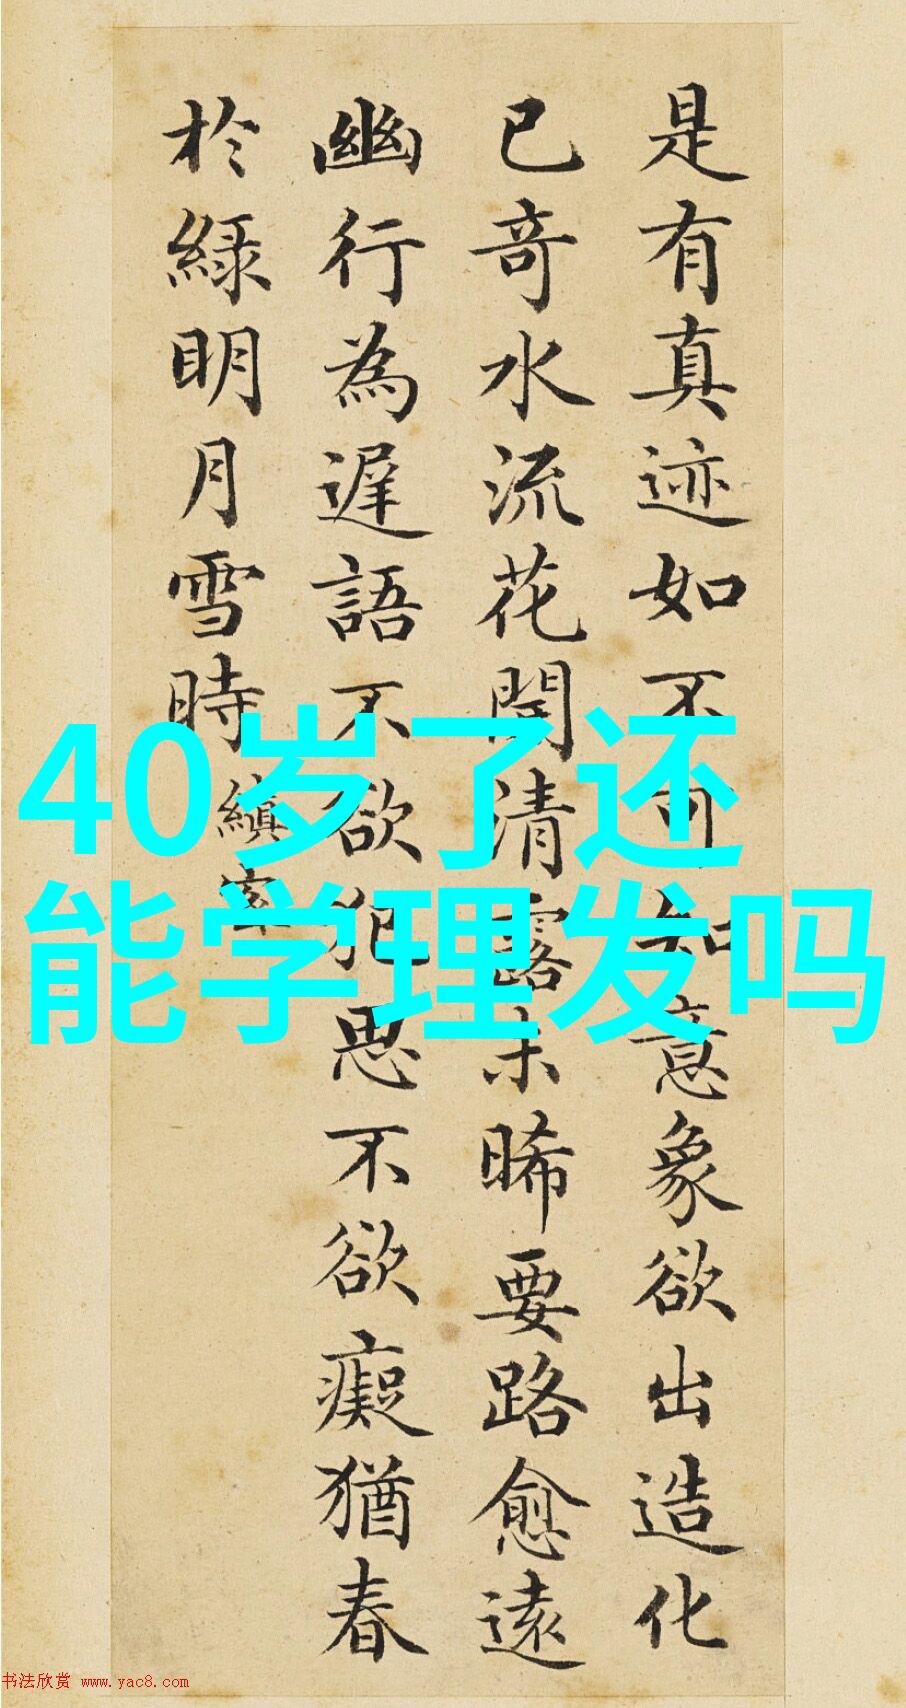 是有真迹如不可知意象欲出造化
已奇水流花開清露未晞要路愈遠
幽行為遲語不欲犯思不欲癡猶春
於緑明月雪時
縝密
40岁了还
能学理发吗
书法欣赏 www.yac8.com